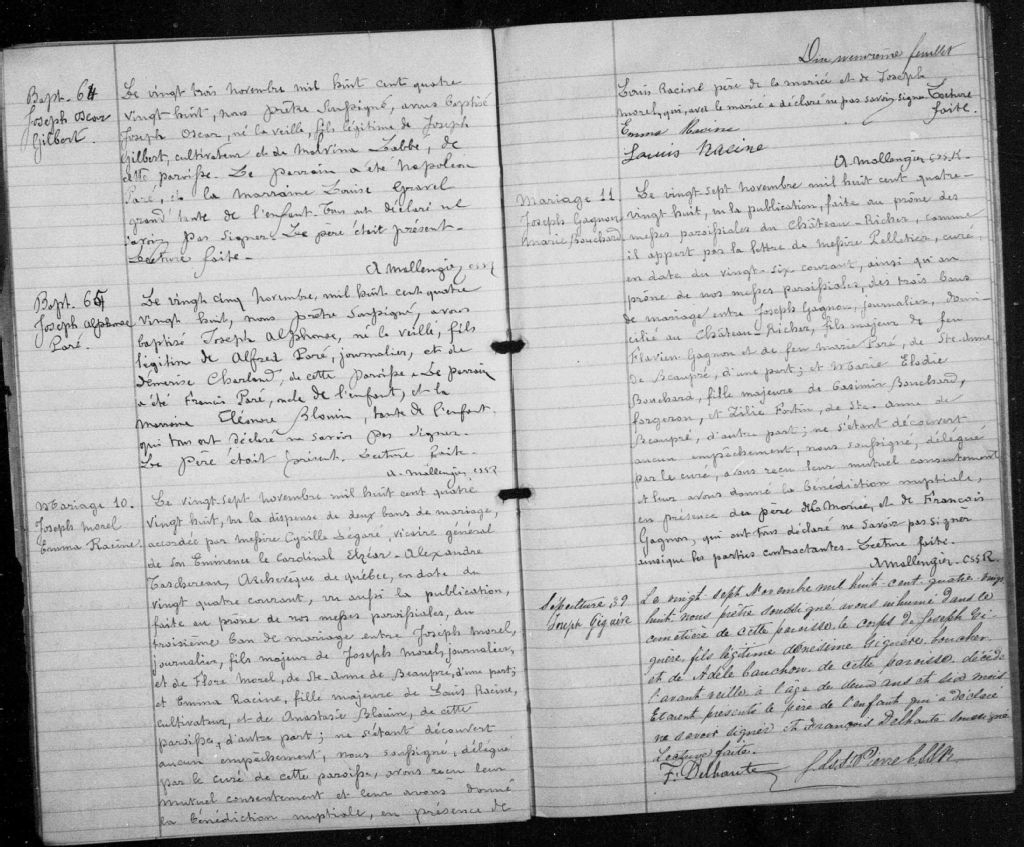 Bapt. 64
Joseph Oscar
Gilbert.
Le vingt trois novembre mil huit cent quatre
vingt huit, nous prêtre soussigné, avons baptisé
Joseph Oscar, né la veille, fils légitime de Joseph
Gilbert, cultivateur et de Malvina Labbé, de
cette paroisse. Le parrain a été Napoléon
Paré, et la marraine Louise Gravel
grand'tante de l'enfant. Tous ont déclaré ne
savoir pas signer. Le père était présent.
Lecture faite.
A. Mallengier CSSR
Bapt. 65
Joseph Alphonse
Paré.
Le vingt cinq novembre, mil huit cent quatre
vingt huit, nous prêtre soussigné, avons
baptisé Joseph Alphonse, né la veille, fils
légitim de Alfred Paré, journalier, et de
Démerise Charland, de cette paroisse. Le parrain
a été Francis Paré, oncle de l'enfant, et la
marraine Eléonore Blouin, tante de l'enfant.
qui tous ont déclaré ne savoir pas signer.
Le Père était présent. Lecture faite.
A. Mallengier CSSR
Mariage 10.
Joseph Morel
Emma Racine.
Le vingt-sept novembre mil huit cent quatre
vingt huit, vu la dispense de deux bans de mariage,
accordée par Messire Cyrille Legaré, vicaire général
de son Eminence le Cardinal Elzéar-Alexandre
Taschereau, Archevêque de Québec, en date du
vingt quatre courant, vu aussi la publication,
faite au prone de nos messes paroissiales, du
troisième ban de mariage entre Joseph Morel,
journalier, fils majeur de Joseph Morel, journalier,
et de Flore Morel, de Ste. Anne de Beaupré, d'une part;
et Emma Racine, fille majeure de Louis Racine,
cultivateur, et de Anastasie Blouin, de cette
paroisse, d'autre part; ne s'étant découvert
aucun empêchement, nous soussigné, délégué
par le curé de cette paroisse, avons reçu leur
mutuel consentement et leur avons donné
la bénédiction nuptiale, en présence de
feuillet
Louis Racine père de la mariée et de Joseph
Morel, qui, avec le marié a déclaré ne pas savoir signer. Lecture
faite.
Emma Racine
Louis Racine
A. Mallengier CSSR.
Mariage 11.
Joseph Gagnon
Marie Bouchard
Le vingt-sept novembre mil huit cent quatre-
vingt huit, vu la publication, faite au prône des
messes paroissiales du Château-Richer, comme
il appert par la lettre de messire Pelletier, curé,
en date du vingt-six courant, ainsi qu'au
prône de nos messes paroissiales, des trois bans
de mariage entre Joseph Gagnon, journalier, domi-
cilié au Château-Richer, fils majeur de feu
Flavien Gagnon et de feu Marie Paré, de Ste. Anne
de Beaupré, d'une part; et Marie Elodie
Bouchard, fille majeure de Casimir Bouchard,
forgeron, et Zilie Fortin, de Ste. Anne de
Beaupré, d'autre part; ne s'étant découvert
aucun empêchement, nous soussigné, délégué
par le curé, avons reçu leur mutuel consentement
et leur avons donné la bénédiction nuptiale,
en présence du père de la Mariée, et de François
Gagnon, qui ont tous déclaré ne savoir pas signer
ainsi que les parties contractantes. Lecture faite.
A. Mallengier. CSSR.
Sépulture 39
Joseph Giguère
Le vingt sept Novembre mil huit-cent-quatre-vingt
huit, nous prêtre soussigné avons inhumé dans le
cimetière de cette paroisse, le corps de Joseph Gi-
guère, fils légitime d'Onésime Giguère, boucher
et de Adèle Cauchon de cette paroisse, décédé
l'avant veille à l'âge de deux ans et six mois
Etaient présents le père de l'enfant qui a déclaré
ne savoir signer et François Delhaute soussigné
Lecture faite.
F. Delhaute
St Pierre CSSR